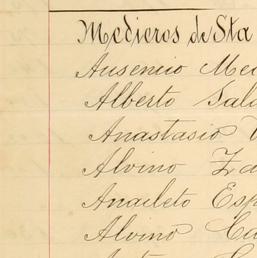 Medieros de Sta
Ausencio Med
Alberto Sala
Anastasio V
Alvino Za
Anacleto Esp
Alvino Cu